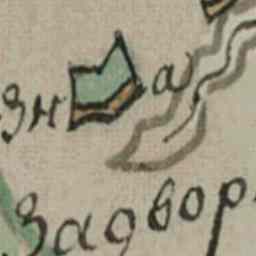 зн а
Задвор